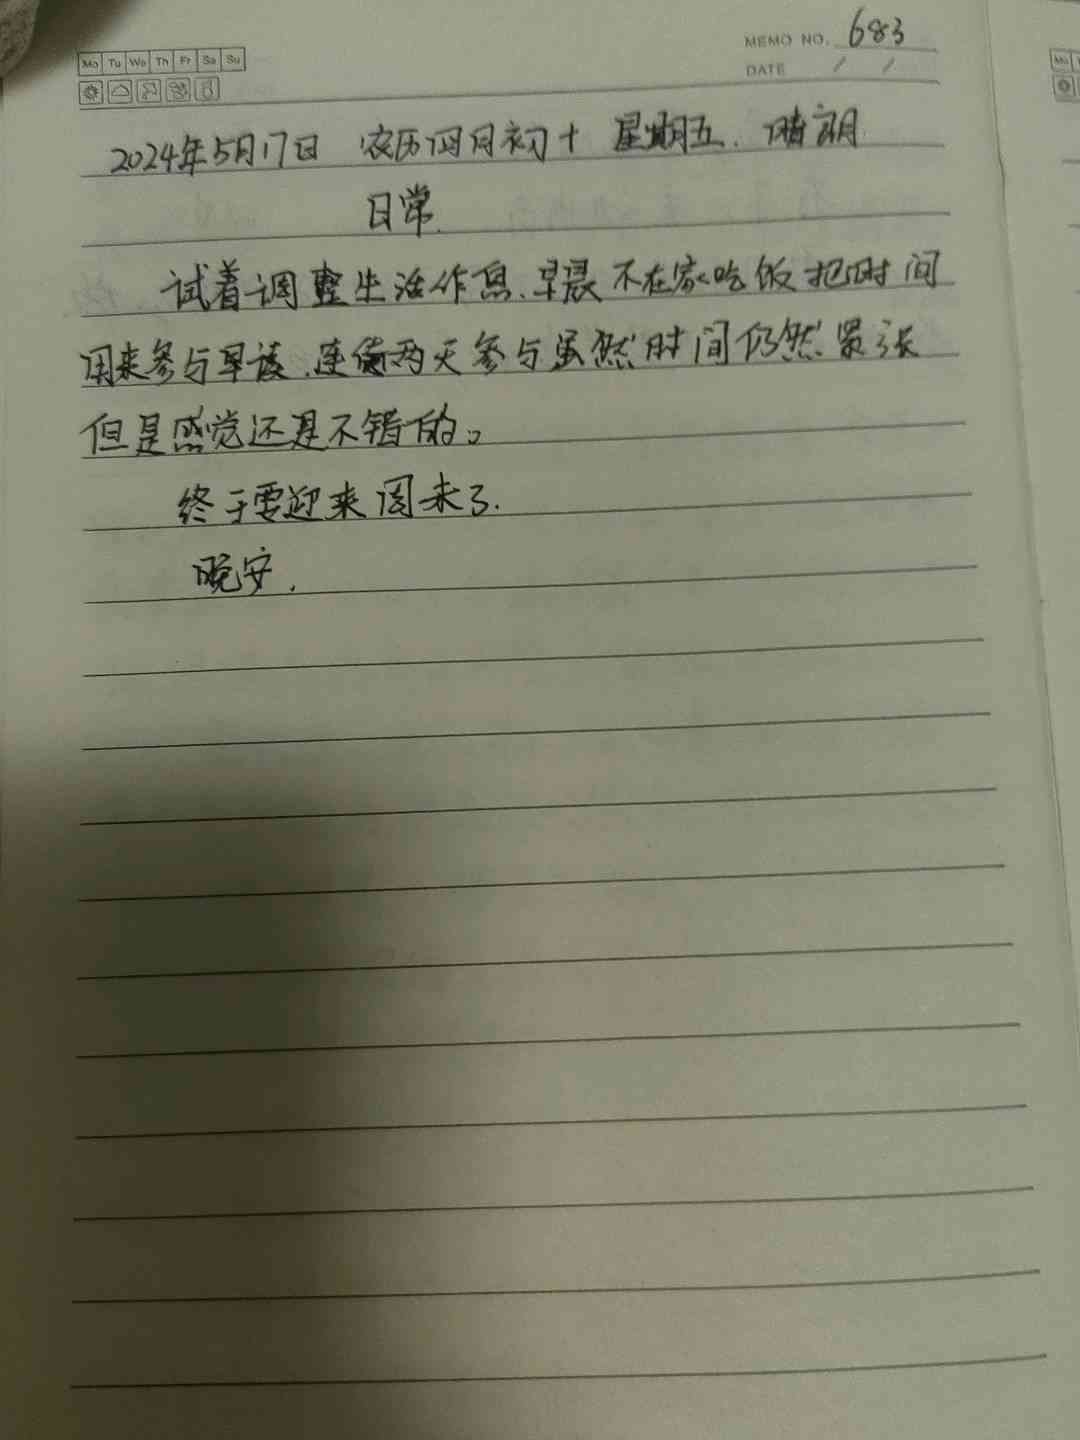 Mo Tu We Th Fr Sa Su
MEMO NO. 683
DATE / /
2024年5月17日 农历四月初十 星期五. 晴朗
日常.
试着调整生活作息.早晨不在家吃饭把时间
用来参与早读.连续两天参与虽然时间仍然紧张
但是感觉还是不错的。
终于要迎来周末了.
晚安.
Mo